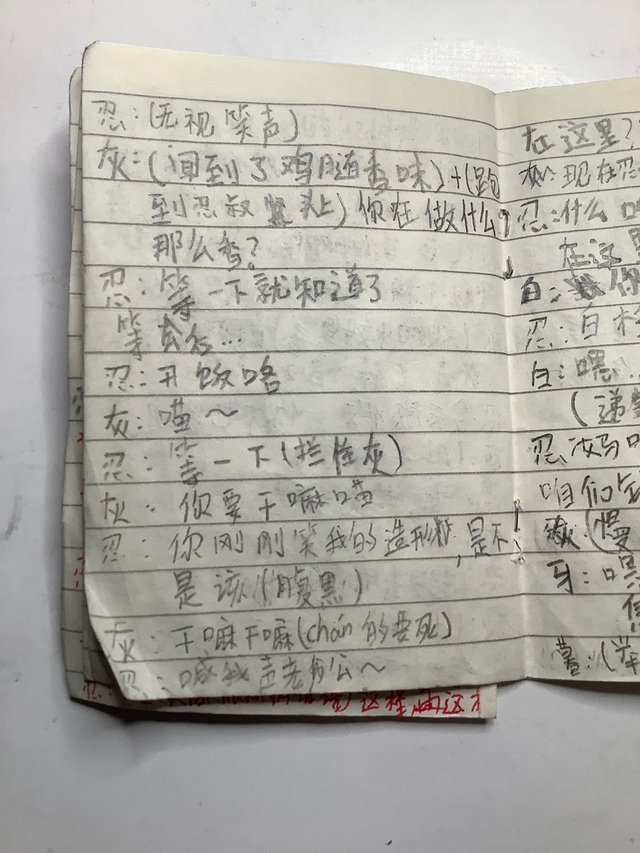 忍:(无视笑声)
灰:(闻到了鸡腿香味)+(跑
到忍叔紧头)你在做什么?
那么香?
忍:等一下就知道了
等会后...
忍:开饭咯
灰:喵~
忍:等一下(拦住灰)
灰:你要干嘛喵
忍:你刚刚笑我的造形,是不
是该(腹黑)
灰:干嘛干嘛(chán的要死)
忍:喊我声老公~
在这里?
灰:现在忍
忍:什么
在这里
白:你
忍:白
白:嘿..
(递
忍
咱们
(慢
牙:嘿
薯:(举